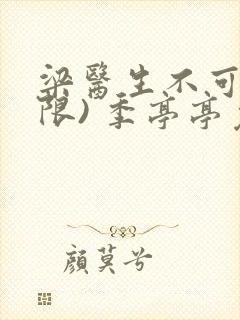 梁醫生不可
限) 季亭亭
顏莫兮